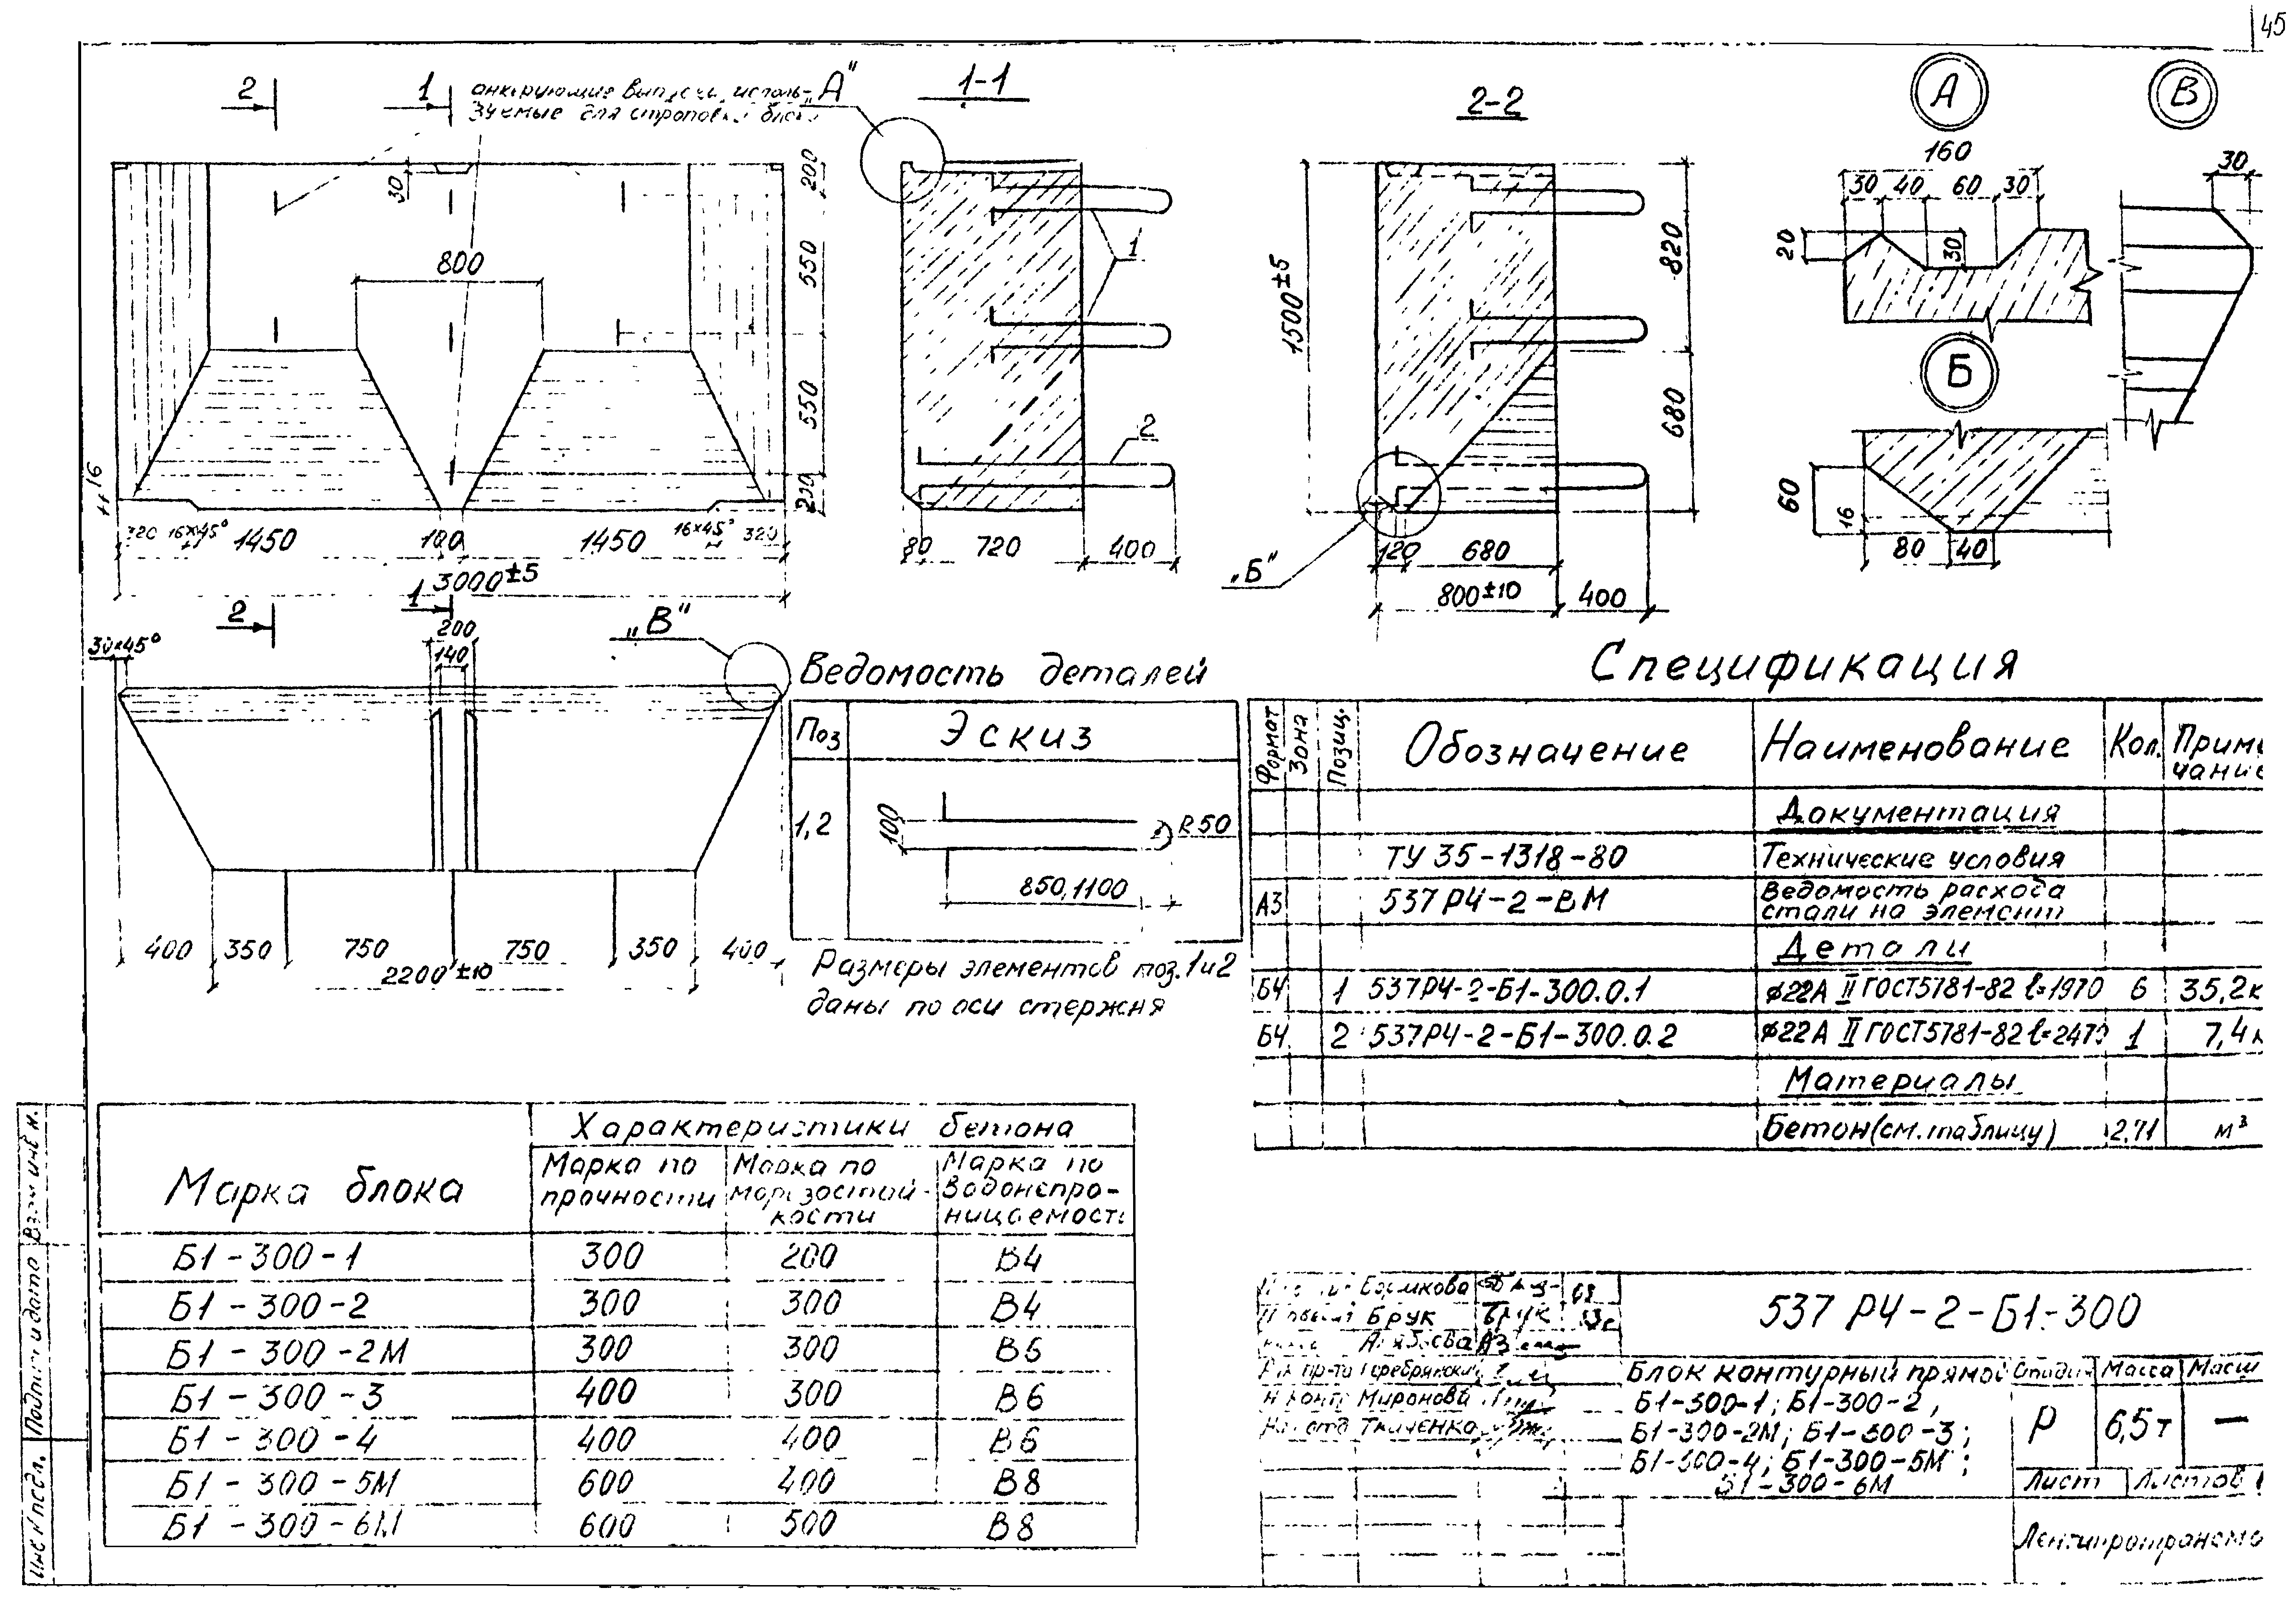 45
2
1
анкерующие выпуски, исполь-
зуемые для строповки блока
„А"
1-1
2-2
А
В
200
30
800
550
550
200
16
320
16×45°
1450
100
1450
16×45°
320
3000±5
1
2
80
720
400
1500±5
820
680
„Б"
120
680
800±10
400
160
30
40
60
30
20
30
30
Б
60
16
80
40
2
1
30×45°
200
140
„В"
400
350
750
750
350
400
2200±10
Ведомость деталей
Поз
Эскиз
1,2
100
R50
850,1100
Размеры элементов поз.1и2
даны по оси стержня
Спецификация
Формат
Зона
Позиц.
Обозначение
Наименование
Кол.
Приме
чание
Документация
ТУ 35-1318-80
Технические условия
А3
537 РЧ-2-ВМ
Ведомость расхода
стали на элемент
Детали
БЧ
1
537РЧ-2-Б1-300.0.1
ф22А II ГОСТ5781-82 ℓ=1970
6
35,2к
БЧ
2
537РЧ-2-Б1-300.0.2
ф22А II ГОСТ5781-82 ℓ=2470
1
7,4к
Материалы
Бетон(см.таблицу)
2,71
м³
Марка блока
Характеристики бетона
Марка по
прочности
Марка по
морозостой-
кости
Марка по
водонепро-
ницаемости
Б1-300-1 300 200 В4
Б1-300-2 300 300 В4
Б1-300-2М 300 300 В6
Б1-300-3 400 300 В6
Б1-300-4 400 400 В6
Б1-300-5М 600 400 В8
Б1-300-6М 600 500 В8
Взам инв н.
Подпись и дата
Инв N подл.
Брук
Брук
Н контр Миронова
Нач отд Ткаченко
537 РЧ-2-Б1-300
Блок контурный прямой
Б1-300-1; Б1-300-2,
Б1-300-2М; Б1-300-3;
Б1-300-4; Б1-300-5М;
Б1-300-6М
Стадия
Масса
Масш
Р
6,5т
—
Лист
Листов 1
Ленгипротрансмо